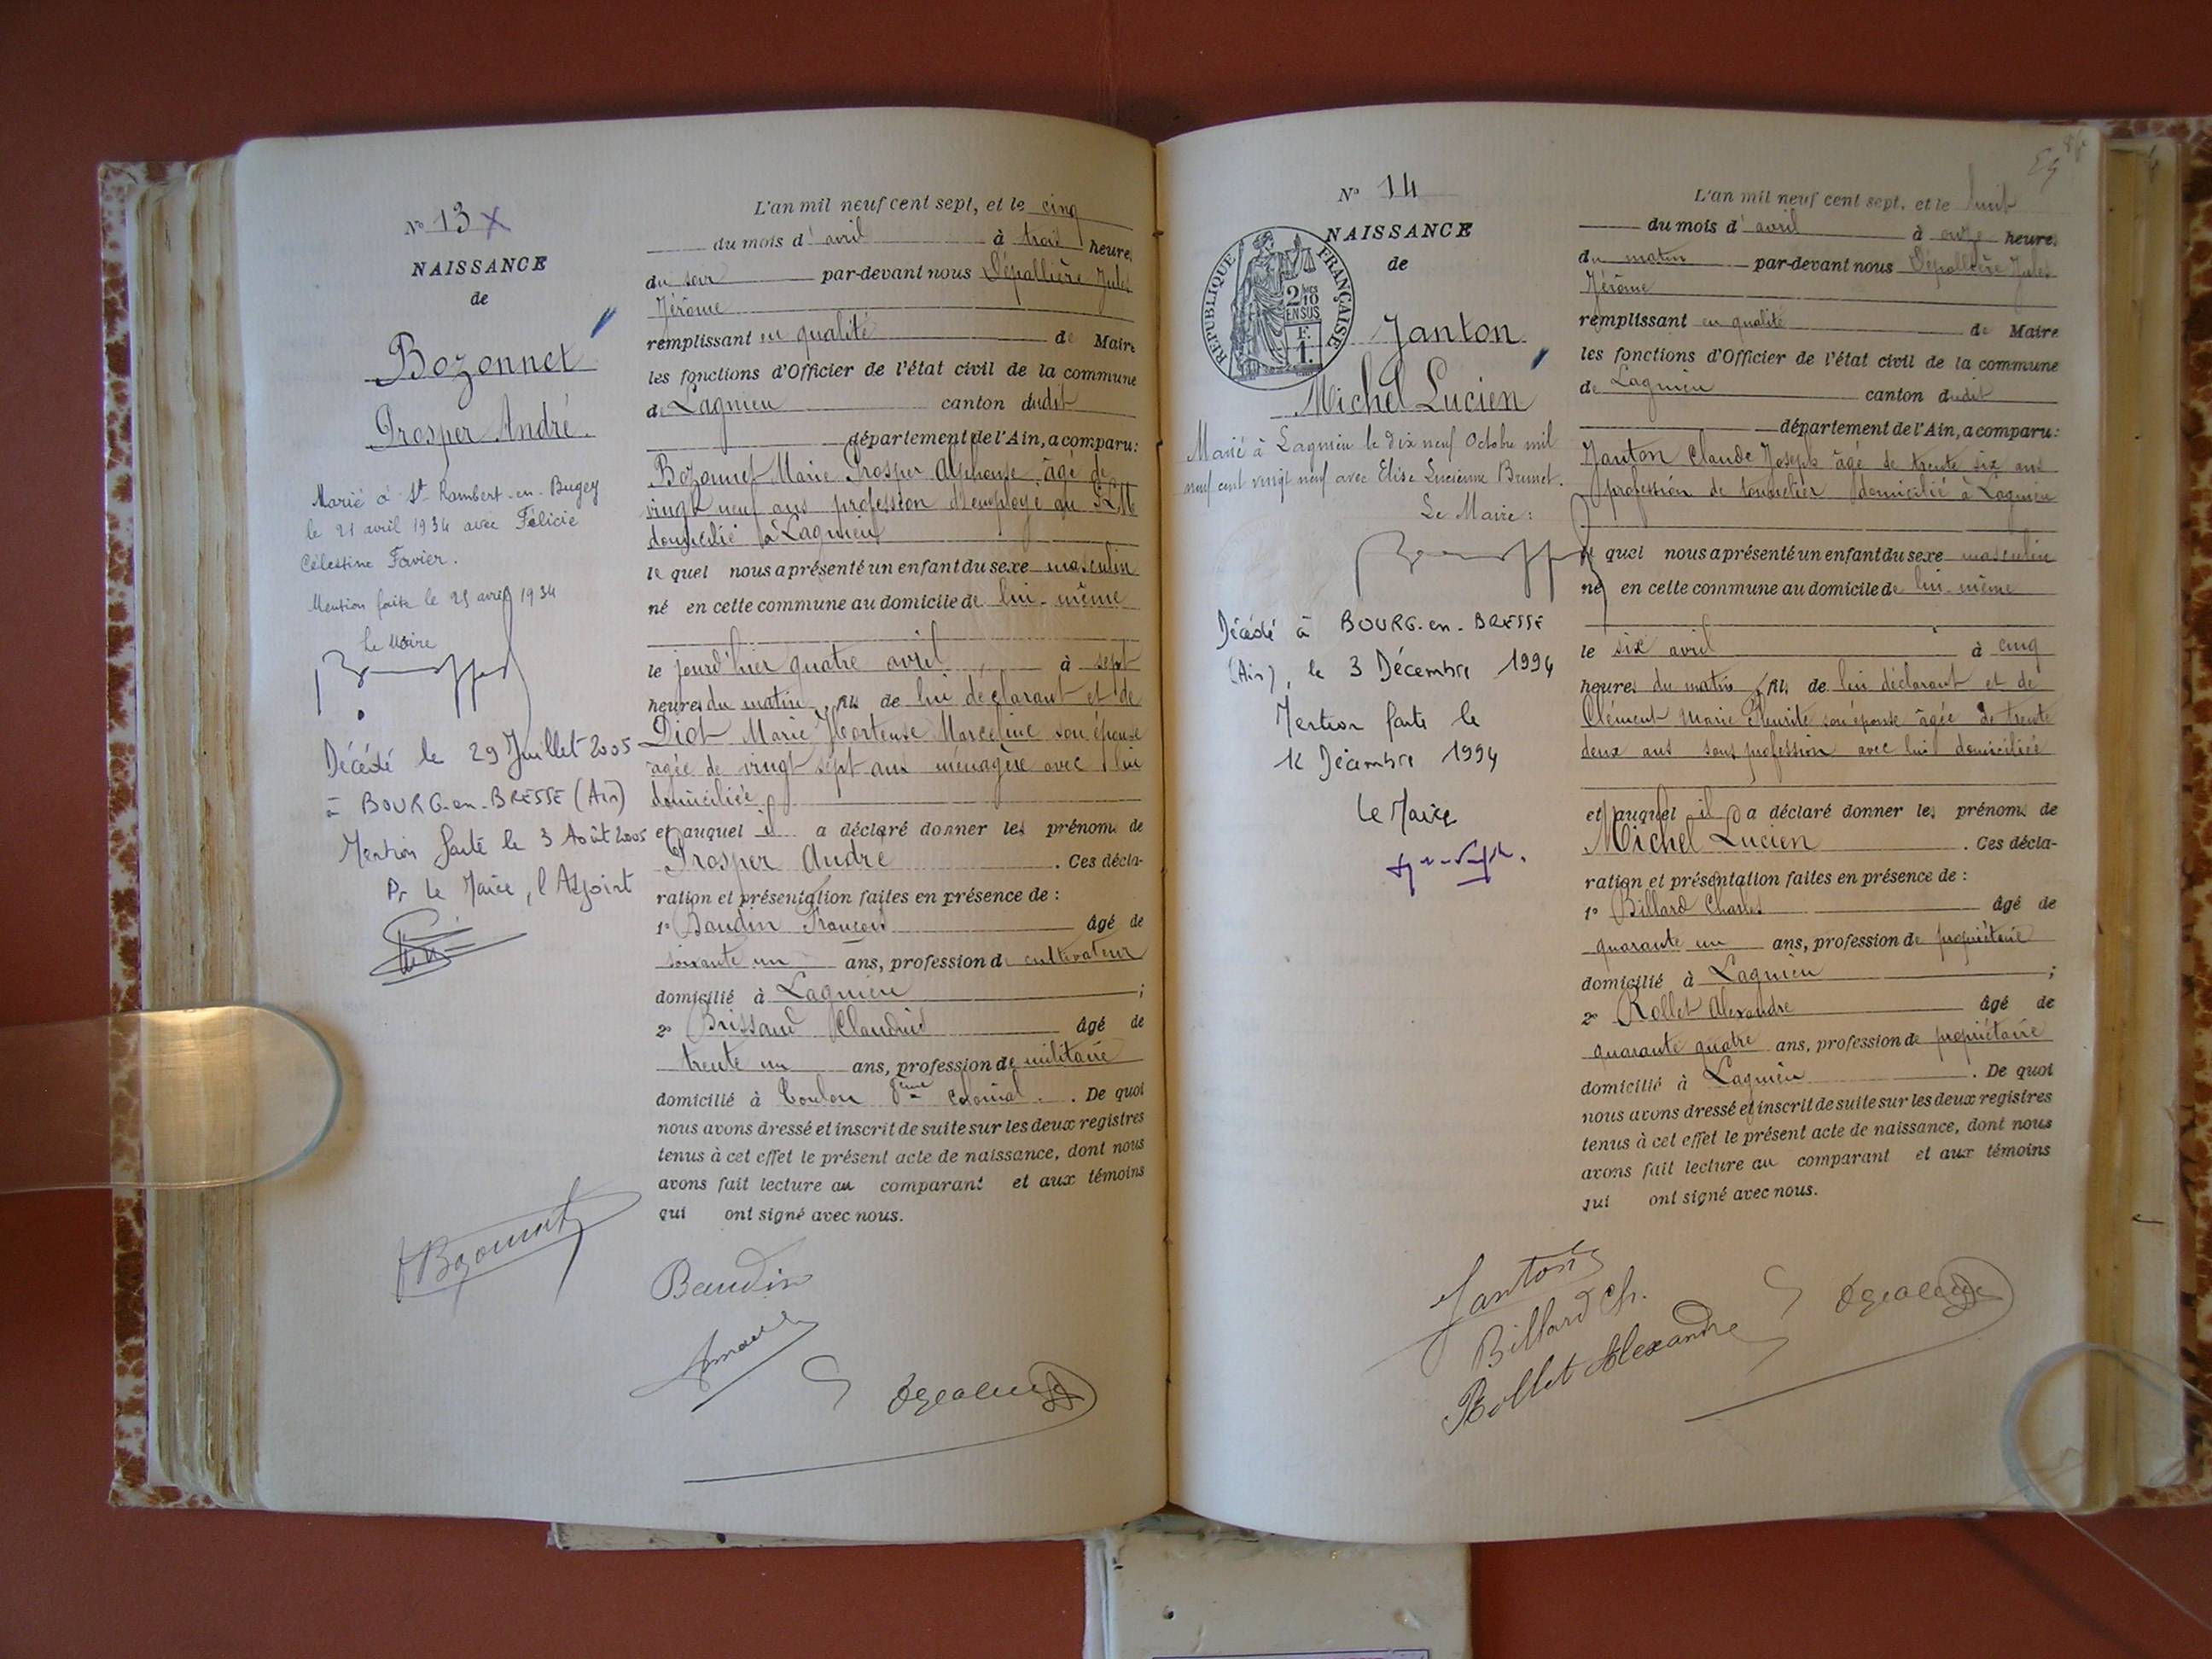 N° 13 X
NAISSANCE
de
Bozonnet
Prosper André.
Marié à St Rambert-en-Bugey
le 21 avril 1934 avec Félicie
Célestine Favier.
Mention faite le 25 avril 1934
Le Maire
Décédé le 29 Juillet 2005
à BOURG-en-BRESSE (Ain)
Mention faite le 3 Août 2005
Pr Le Maire, l'Adjoint
L'an mil neuf cent sept, et le cinq
du mois d'avril à trois heures
du soir par-devant nous Dépallière Jules
Jérôme
remplissant en qualité de Maire
les fonctions d'Officier de l'état civil de la commune
de Lagnieu canton dudit
département de l'Ain, a comparu:
Bozonnet Marie Prosper Alphonse âgé de
vingt neuf ans profession d'employé au PLM
domicilié à Lagnieu
lequel nous a présenté un enfant du sexe masculin
né en cette commune au domicile de lui-même
le jourd'hier quatre avril à sept
heures du matin, fils de lui déclarant et de
Diot Marie Hortense Marceline son épouse
âgée de vingt sept ans ménagère avec lui
domiciliée
et auquel il a déclaré donner les prénoms de
Prosper André. Ces décla-
ration et présentation faites en présence de :
1° Baudin François âgé de
soixante un ans, profession de cultivateur
domicilié à Lagnieu ;
2° Brissaud Claudius âgé de
trente un ans, profession de militaire
domicilié à Toulon 8ème colonial. De quoi
nous avons dressé et inscrit de suite sur les deux registres
tenus à cet effet le présent acte de naissance, dont nous
avons fait lecture au comparant et aux témoins
qui ont signé avec nous.
Bozonnet
Baudin
N° 14
NAISSANCE
de
RÉPUBLIQUE FRANÇAISE
2/10
EN SUS
1 F.
Janton
Michel Lucien
Marié à Lagnieu le dix neuf Octobre mil
neuf cent vingt neuf avec Elise Lucienne Brunet.
Le Maire :
Décédé à BOURG-en-BRESSE
(Ain), le 3 Décembre 1994
Mention faite le
12 Décembre 1994
Le Maire
L'an mil neuf cent sept, et le huit
du mois d'avril à onze heures
du matin par-devant nous Dépallière Jules
Jérôme
remplissant en qualité de Maire
les fonctions d'Officier de l'état civil de la commune
de Lagnieu canton dudit
département de l'Ain, a comparu:
Janton Claude Joseph âgé de trente six ans
profession de tonnelier domicilié à Lagnieu
lequel nous a présenté un enfant du sexe masculin
né en cette commune au domicile de lui-même
le six avril à cinq
heures du matin, fils de lui déclarant et de
Clément Marie Fleurite son épouse âgée de trente
deux ans sans profession avec lui domiciliée
et auquel il a déclaré donner les prénoms de
Michel Lucien. Ces décla-
ration et présentation faites en présence de :
1° Billard Charles âgé de
quarante un ans, profession de propriétaire
domicilié à Lagnieu ;
2° Rollet Alexandre âgé de
quarante quatre ans, profession de propriétaire
domicilié à Lagnieu. De quoi
nous avons dressé et inscrit de suite sur les deux registres
tenus à cet effet le présent acte de naissance, dont nous
avons fait lecture au comparant et aux témoins
qui ont signé avec nous.
Janton
Billard Ch.
Rollet Alexandre